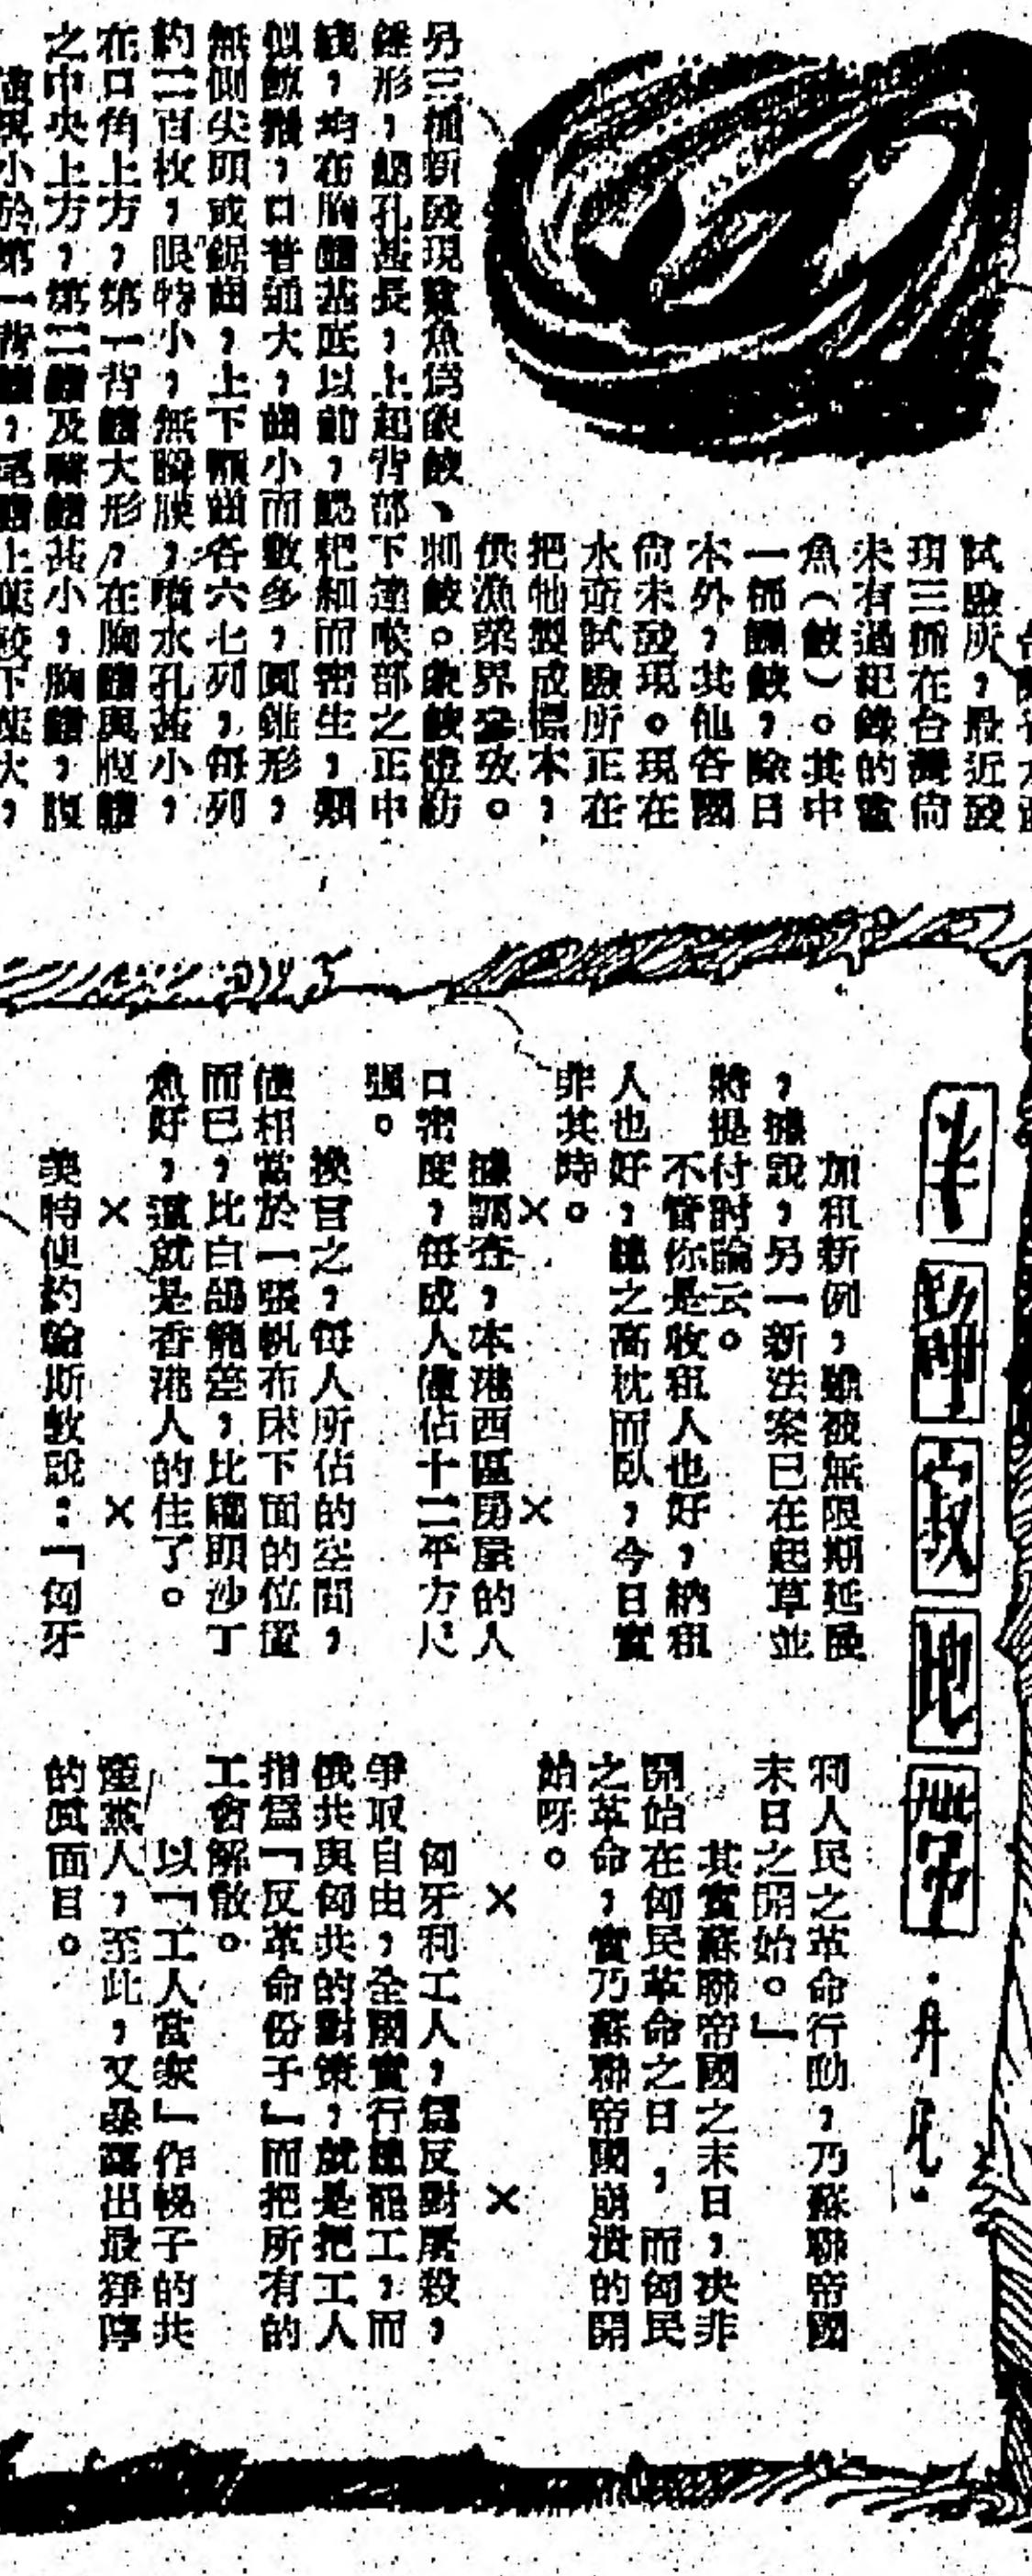 試驗所，最近發
現三種在台灣尚
未有過紀錄的鯊
魚（鮫）。其中
一種鮫，除日
本外，其他各國
尚未發現。現在
水產試驗所正在
把牠製成標本，
供漁業界參攷。
另三種新發現鯊魚為鮫、鮫。鮫體紡
錘形，鰓孔甚長，上起背部下達喉部之正中
綫，均在胸鰭基底以前，鰓耙細而密生，類
似鯨鬚，口普通大，齒小而數多，圓錐形，
無側尖頭或鋸齒，上下顎齒各六七列，每列
約二百枚，眼特小，無瞬膜，噴水孔甚小，
在口角上方，第一背鰭大形，在胸鰭與腹鰭
之中央上方，第二鰭及臀鰭甚小，胸鰭，腹
小於第一背鰭，尾鰭上葉較下葉大，
半的呼啟地帶
・丹尼・
加租新例，雖被無限期延擱
，據說，另一新法案已在起草並
將提付討論云。
不管你是收租人也好，納租
人也好，總之高枕而臥，今日實
非其時。
×　×
據調查，本港西區房屋的人
口密度，每成人僅佔十二平方尺
強。
換言之，每人所佔的空間，
僅相當於一張帆布床下面的位置
而已，比白鴿籠差，比罐頭沙丁
魚好，這就是香港人的住了。
×　×
美特使約翰斯敦說：「匈牙
利人民之革命行動，乃蘇聯帝國
末日之開始。」
其實蘇聯帝國之末日，決非
開始在匈民革命之日，而匈民
之革命，實乃蘇聯帝國崩潰的開
始呀。
×　×
匈牙利工人，為反對屠殺，
爭取自由，全國實行總罷工，而
俄共與匈共的對策，就是把工人
指為「反革命份子」而把所有的
工會解散。
以「工人當家」作幌子的共
產黨人，至此，又暴露出最猙獰
的真面目。